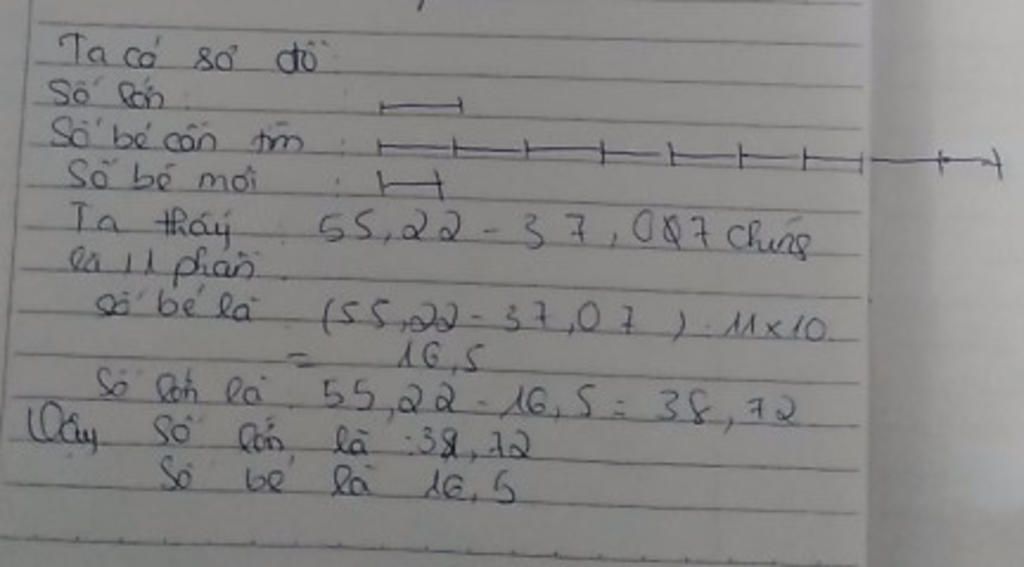 Ta có sơ đồ
Số lớn
Số bé cần tìm :
Số bé mới :
Ta thấy 55,22 - 37,07 chúng
là 11 phần
Số bé là (55,22 - 37,07) : 11 x 10
= 16,5
Số lớn là 55,22 - 16,5 = 38,72
Vậy số lớn là : 38,72
Số bé là 16,5